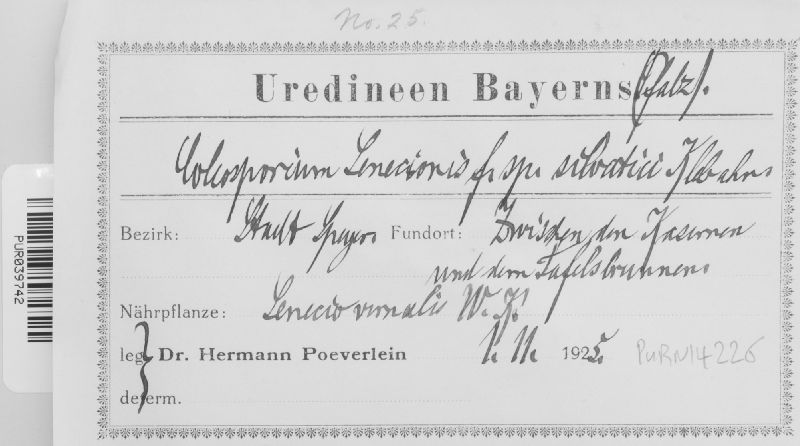 No. 25.
Uredineen Bayerns (Pfalz).
Coleosporium Senecionis f. sp. silvatici Klebahn.
Bezirk: Stadt Speyer. Fundort: Zwischen den Kasernen
und dem Tafelsbrunnen.
Nährpflanze: Senecio vernalis W. K.
leg. Dr. Hermann Poeverlein 1. 11. 1925. PURN14226
determ.
PUR039742